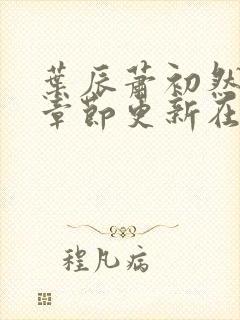 葉辰蕭初然
章節更新在
程凡病